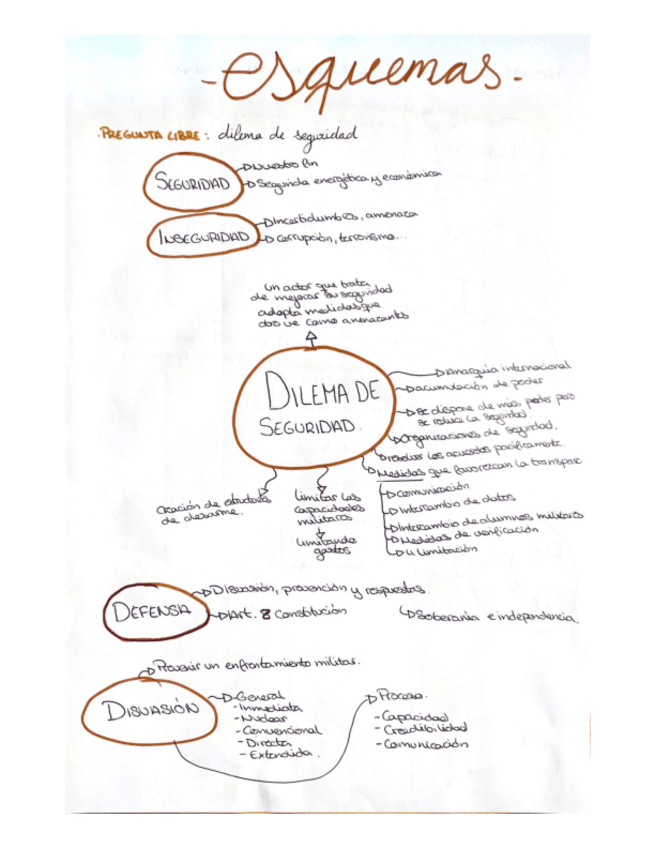 -esquemas-
·PREGUNTA LIBRE: dilema de seguridad
SEGURIDAD
Nuestro fin
Segurida energética y económica
INSEGURIDAD
Incertidumbres, amenaza
corrupción, terrorismo...
Un actor que trata
de mejorar su seguridad
adopta medidas que
otro ve como amenazantes
DILEMA DE
SEGURIDAD.
Anarquía internacional
acumulación de poder
se dispone de más poder pero
se reduce la seguridad
Organizaciones de seguridad.
resolver los acuerdos pacíficamente.
Medidas que favorezcan la transpar
comunicación
Intercambio de datos
Intercambio de alumnos militares
Medidas de verificación
limitación
Creación de
de desarme.
Limitar las
capacidades
militares
limitando
gastos
DEFENSA
Disuasión, prevención y respuestas.
Art. 8 Constitución
Soberanía e independencia.
Prevenir un enfrentamiento militar.
DISUASIÓN
General
-Inmediata
-Nuclear
-Convencional
-Directa
-Extendida.
Proceso.
-Capacidad
-Credibilidad
-Comunicación